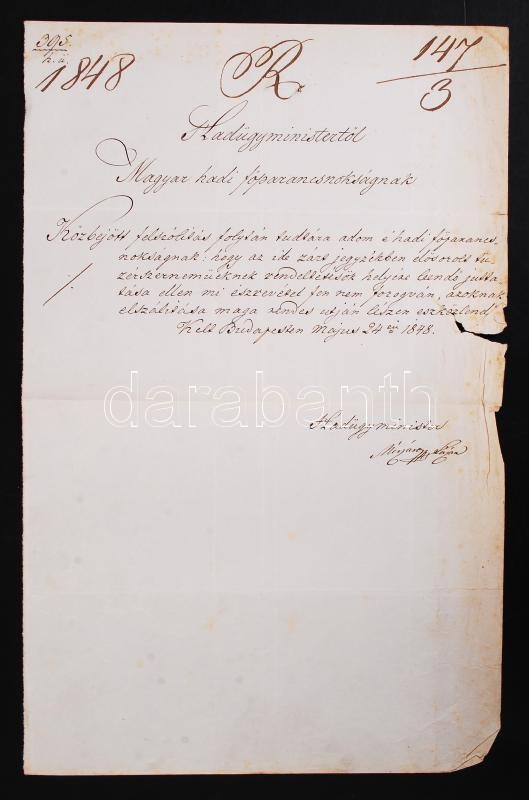 395.
k. ü.
1848
R.
147
3
Hadügyministertöl
Magyar hadi főparancsnokságnak
Közbejött felszólitás folytán tudtára adom é hadi főparancs„
nokságnak: hogy az ide zárt jegyzékben elősorolt tü„
zérszerneműeknek rendeltetésök helyére leendő jutta„
tása ellen mi észrevétel fen nem forogván, azoknak
elszálitása maga rendes utján lészen eszközlend
Kelt Budapesten Május 24én 1848.
darabanth
Hadügyminister